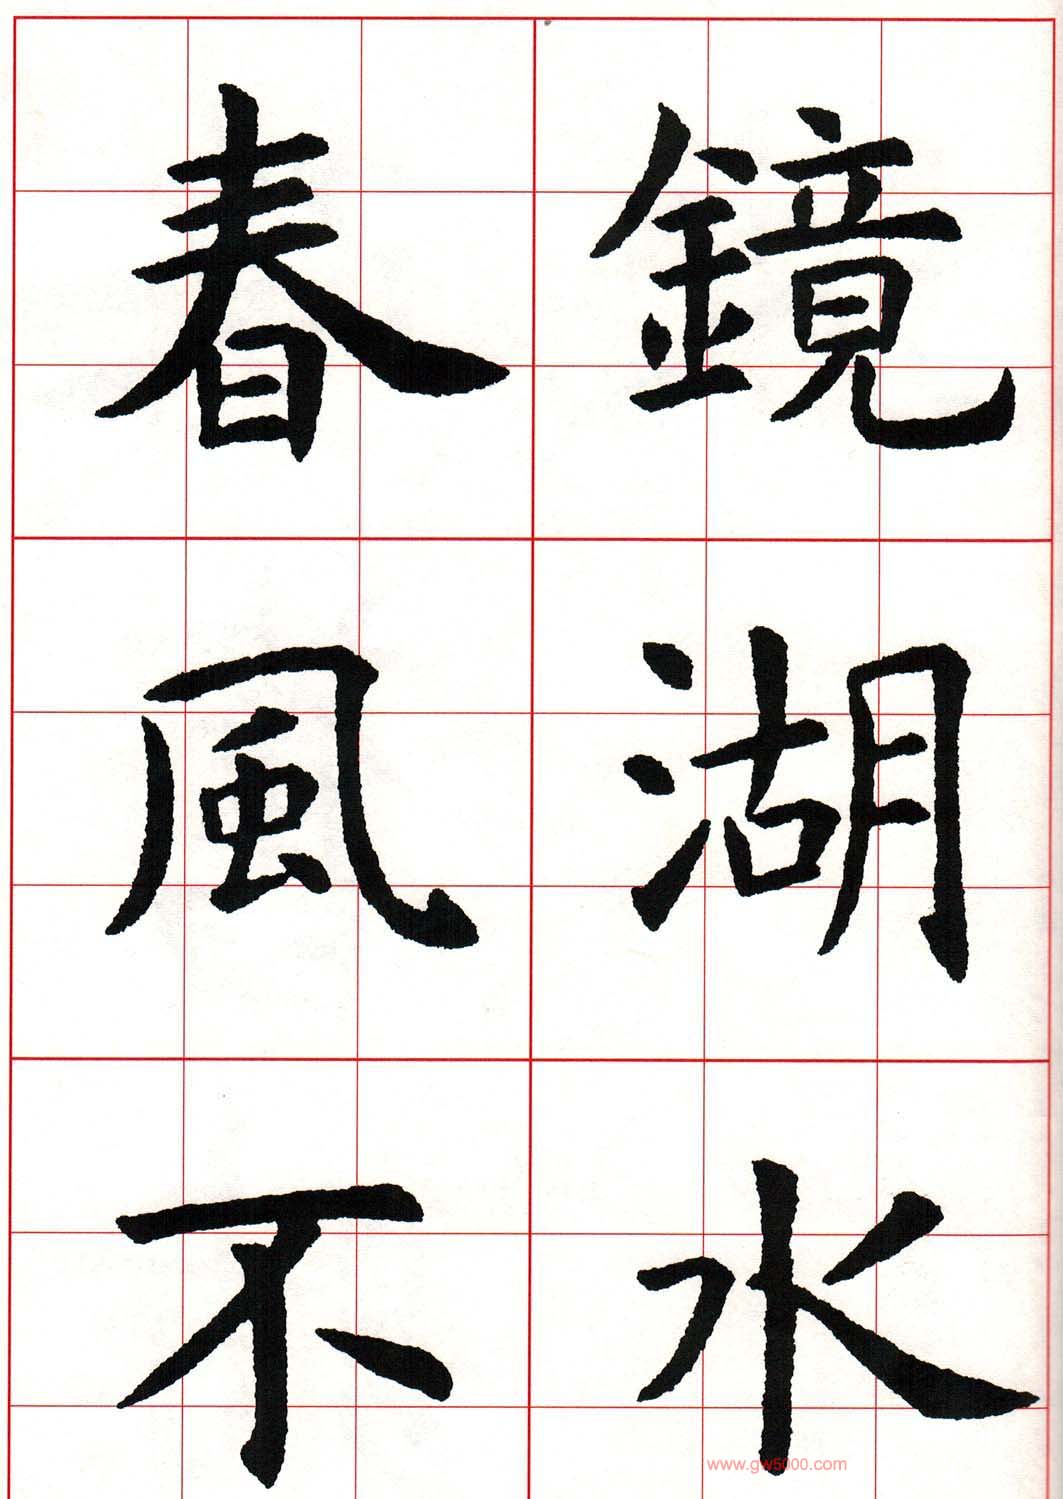 鏡湖水
春風不
www.gw5000.com